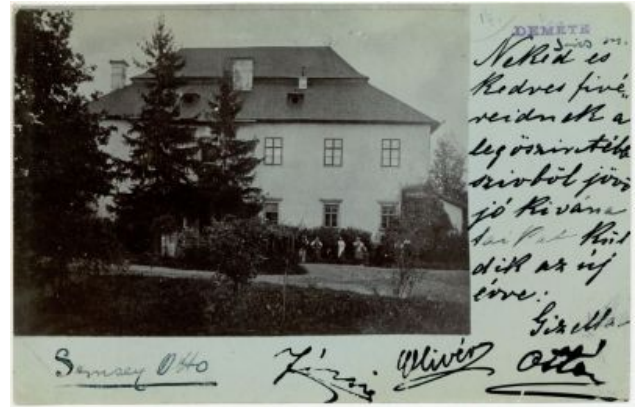 DEMÉTE
Sáros m.
Neked és
kedves fivé-
reidnek a
legőszintébb
szivből jövő
jó kivána
taikat kül
dik az új
évre:
Gizella
Semsey Otto
Józsi Olivér Ottó